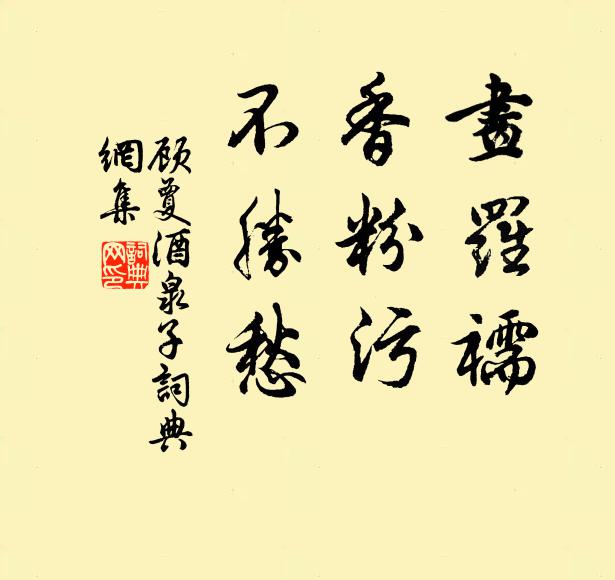 畫羅襦
香粉污
不勝愁
顧夐酒泉子詞典
網集
詞典
网印